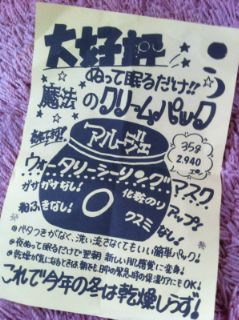 大好評
ぬって眠るだけ!!
魔法のクリームパック
アルージェ
35g
2,940
ウォータリーシーリングマスク
カサカサなし! 化粧のりアップ?
粉ふきなし! クスミなし!
ベタつきがなく、洗い流さなくてもいい簡単パック!
夜ぬって眠るだけで翌朝、新しい肌感覚に変身!
乾燥が気になるときは朝や日中の緊急時の保湿ケアにもOK!
これで今年の冬は乾燥しらず!